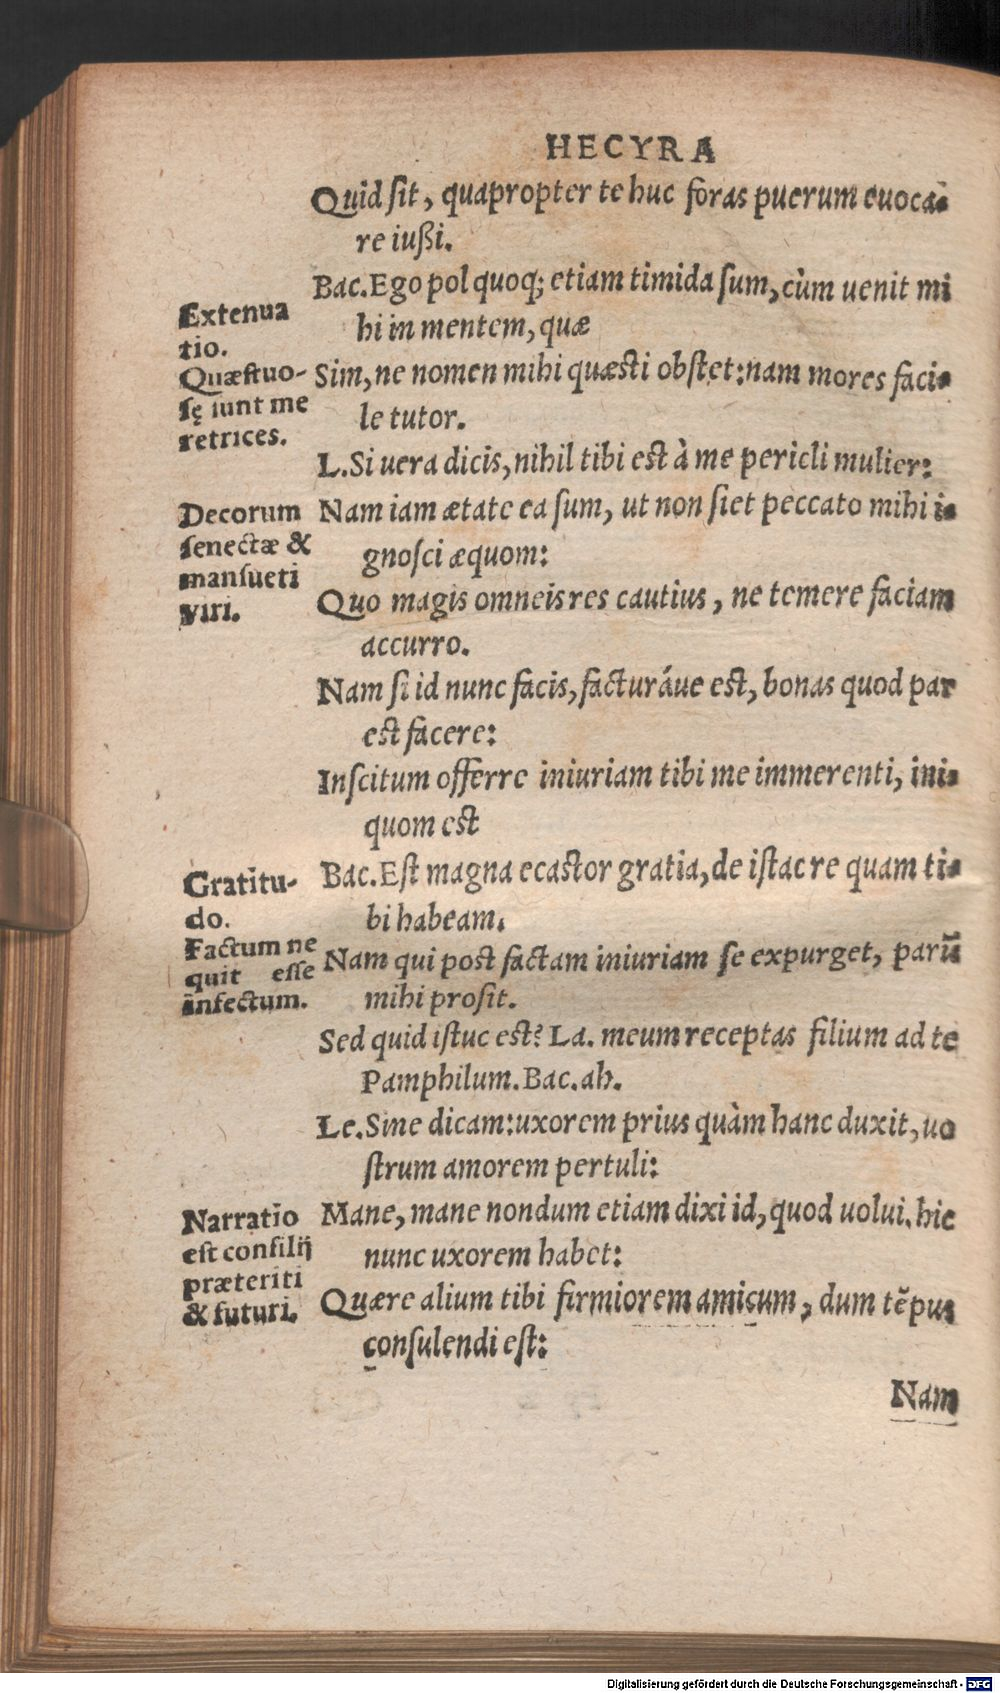 HECYRA
Quid sit, quapropter te huc foras puerum euoca-
re iußi.
Bac. Ego pol quoq; etiam timida sum, cùm uenit mi
hi in mentem, quæ
Extenua
tio.
Sim, ne nomen mihi quæsti obstet: nam mores faci-
le tutor.
Quæstuo-
sę sunt me
retrices.
L. Si uera dicis, nihil tibi est à me pericli mulier:
Nam iam ætate ea sum, ut non siet peccato mihi i-
gnosci æquom:
Decorum
senectæ &
mansueti
viri.
Quo magis omneis res cautius, ne temere faciam
accurro.
Nam si id nunc facis, facturáue est, bonas quod par
est facere:
Inscitum offerre iniuriam tibi me immerenti, ini-
quom est
Bac. Est magna ecastor gratia, de istac re quam ti-
bi habeam.
Gratitu-
do.
Nam qui post factam iniuriam se expurget, parū
mihi prosit.
Factum ne
quit esse
infectum.
Sed quid istuc est? La. meum receptas filium ad te
Pamphilum. Bac. ah.
Le. Sine dicam: uxorem prius quàm hanc duxit, uo
strum amorem pertuli:
Mane, mane nondum etiam dixi id, quod uolui. hic
nunc uxorem habet:
Narratio
est consilij
præteriti
& futuri.
Quære alium tibi firmiorem amicum, dum tẽpus
consulendi est:
Nam
Digitalisierung gefördert durch die Deutsche Forschungsgemeinschaft - DFG